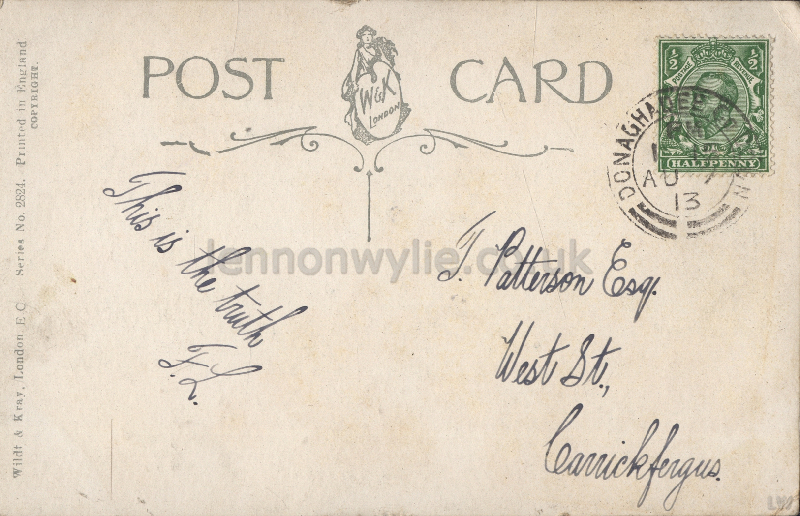 POST CARD
W&K
LONDON
½ ½
POSTAGE REVENUE
HALFPENNY
DONAGHADEE
AU 7
13
This is the truth
F.L.
T. Patterson Esq.
West St.,
Carrickfergus.
Wildt & Kray, London E.C. Series No. 2824. Printed in England
COPYRIGHT.
lennonwylie.co.uk
LW